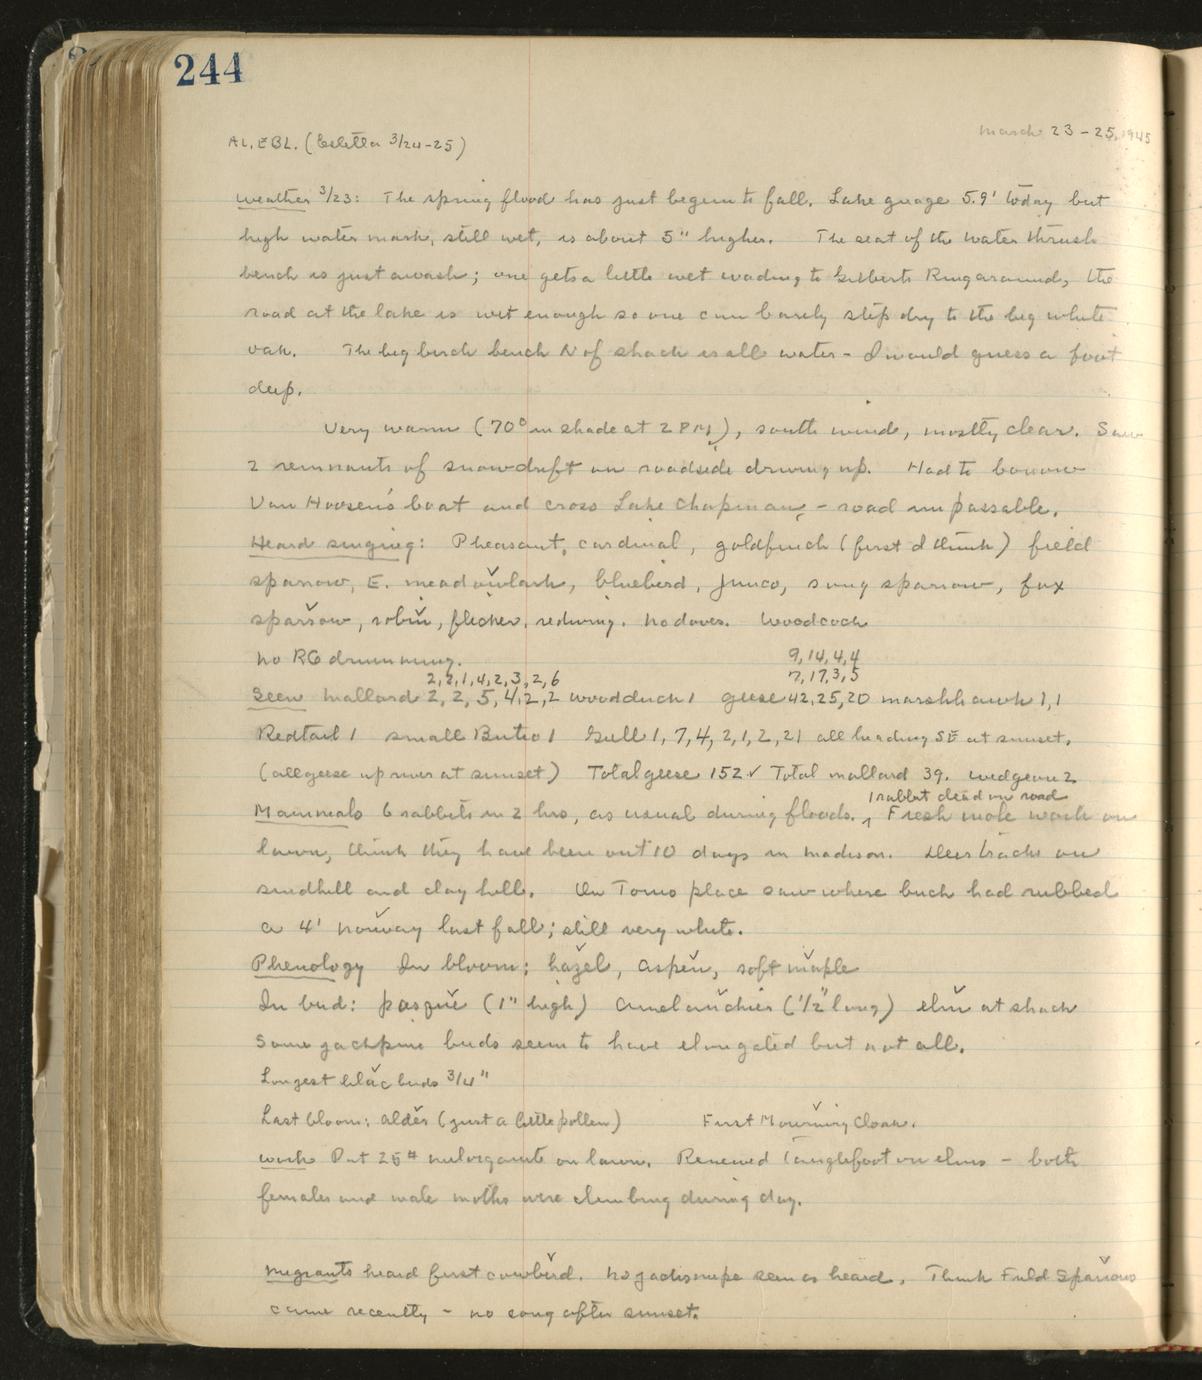 244
March 23-25, 1945
AL, EBL. (Estella 3/24-25)
Weather 3/23: The spring flood has just begun to fall. Lake guage 5.9' today but
high water mark, still wet, is about 5" higher. The seat of the water thrush
bench is just awash; one gets a little wet wading to Gilberts Ringaround, the
road at the lake is wet enough so one can barely step dry to the big white
oak. The big birch bench N of shack is all water - I would guess a foot
deep.
Very warm (70° in shade at 2 PM), south wind, mostly clear. Saw
2 remnants of snowdrift on roadside driving up. Had to borrow
Van Hoosen's boat and cross Lake Chapman, - road impassable.
Heard singing: Pheasant, cardinal, goldfinch (first I think) field
sparrow, E. meadowlark, bluebird, junco, song sparrow, fox
sparrow, robin, flicker, redwing. No doves. Woodcock
No RG drumming. 9,14,4,4
2,2,1,4,2,3,2,6 7,17,3,5
Seen mallard 2,2,5,4,2,2 woodduck 1 geese 42,25,20 marshhawk 1,1
Redtail 1 small Buteo 1 Gull 1,7,4,2,1,2,21 all heading SE at sunset.
(all geese up river at sunset) Total geese 152 ✓ Total mallard 39. widgeon 2
1 rabbit dead on road
Mammals 6 rabbits in 2 hrs, as usual during floods. Fresh mole work on
lawn, think they have been out 10 days in Madison. Deer tracks on
sandhill and clay hill. On Toms place saw where buck had rubbed
a 4' norway last fall; still very white.
Phenology In bloom: hazel, aspen, soft maple
In bud: pasque (1" high) amelanchier (1/2" long) elm at shack
Some jackpine buds seem to have elongated but not all.
Longest lilac buds 3/4"
Last bloom: alder (just a little pollen) First Mourning Cloak.
Work Put 25# milorganite on lawn. Renewed Tanglefoot on elms - both
females and male moths were climbing during day.
Migrants heard first cowbird. No jacksnipe seen or heard. Think Field Sparrows
came recently - no song after sunset.